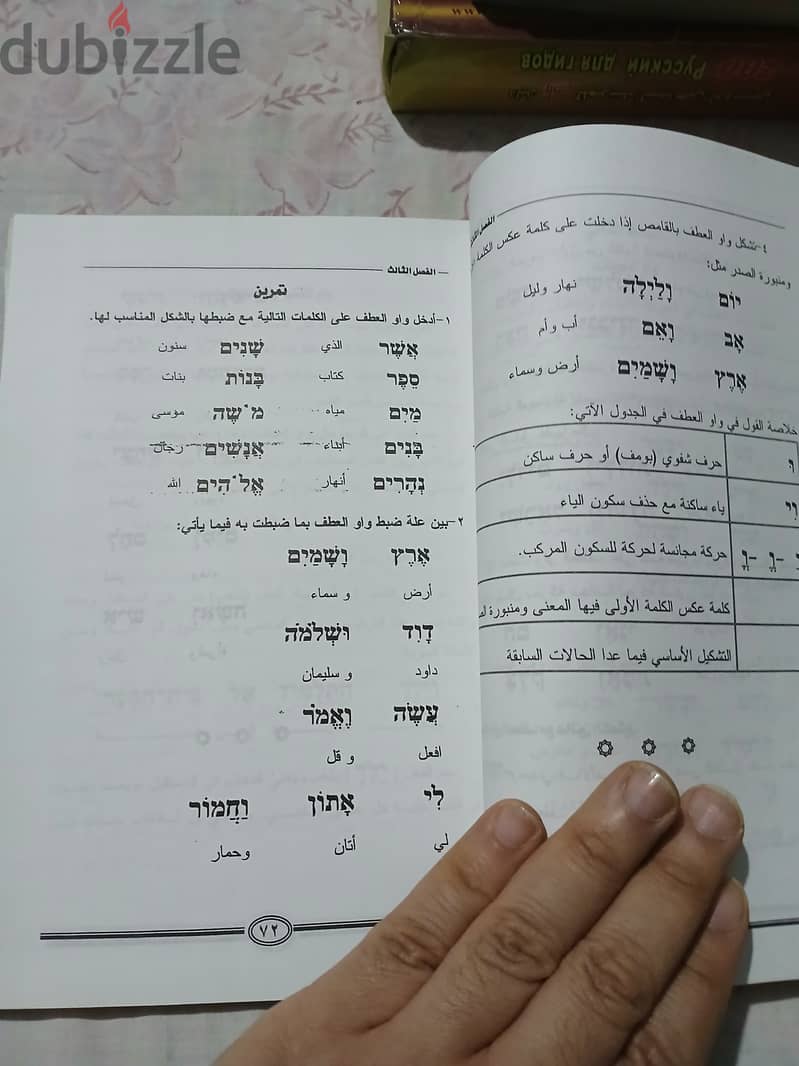 dubizzle
Русский для гидов
الفصل
٤-تشكل واو العطف بالقامص إذا دخلت على كلمة عكس الكلمة
ومنبورة الصدر مثل:
יוֹם וָלַיְלָה نهار وليل
אָב וָאֵם أب وأم
אֶרֶץ וְשָׁמַיִם أرض وسماء
خلاصة القول في واو العطف في الجدول الآتي:
וּ حرف شفوي (بومف) أو حرف ساكن
וִי ياء ساكنة مع حذف سكون الياء
حركة مجانسة لحركة للسكون المركب.
كلمة عكس الكلمة الأولى فيها المعنى ومنبورة
التشكيل الأساسي فيما عدا الحالات السابقة
الفصل الثالث
تمرين
١-أدخل واو العطف على الكلمات التالية مع ضبطها بالشكل المناسب لها.
אֲשֶׁר الذي שָׁנִים سنون
סֵפֶר كتاب בָּנוֹת بنات
מַיִם مياه מֹשֶׁה موسى
בָּנִים أبناء אֲנָשִׁים رجال
נְהָרִים أنهار אֱלֹהִים الله
٢-بين علة ضبط واو العطف بما ضبطت به فيما يأتي:
אֶרֶץ וְשָׁמַיִם
أرض و سماء
דָוִד וּשְׁלֹמֹה
داود و سليمان
עֲשֶׂה וֶאֱמֹר
افعل و قل
לִי אָתוֹן וַחֲמוֹר
لي أتان وحمار
٧٢